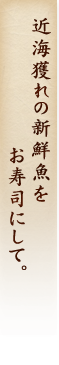 近海獲れの新鮮魚を
お寿司にして。